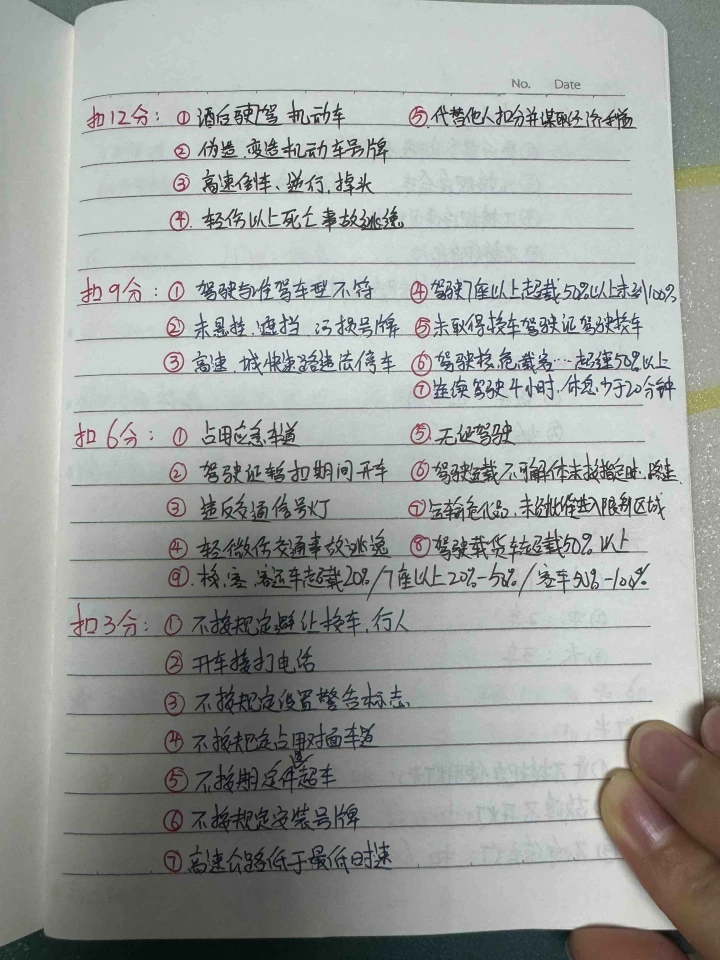 No. Date
扣12分: ① 酒后驶驾 机动车 ⑤. 代替他人扣分并谋取经济利益
② 伪造.变造机动车号牌
③ 高速倒车、逆行.掉头
④. 轻伤以上死亡事故逃逸
扣9分: ① 驾驶与准驾车型不符 ④ 驾驶7座以上超载50%以上未到100%
② 未悬挂.遮挡、污损号牌 ⑤ 未取得校车驾驶证驾驶校车
③ 高速.城快速路违法停车 ⑥ 驾驶校.危载客…超速50%以上
⑦ 连续驾驶4小时.休息少于20分钟
扣6分: ① 占用应急车道 ⑤. 无证驾驶
② 驾驶证暂扣期间开车 ⑥ 驾驶载不可解体未按指定时.路速.
③ 违反交通信号灯 ⑦ 运输危化品.未经批准进入限制区域
④ 轻微伤交通事故逃逸 ⑧ 驾驶载货车超载50%以上
⑨. 校、客、客运车超载20%/7座以上20%-50%/客车50%-100%
扣3分: ① 不按规定避让校车.行人
② 开车接打电话
③ 不按规定设置警告标志
④ 不按规定占用对面车道
⑤ 不按期定件超车
⑥ 不按规定安装号牌
⑦ 高速公路低于最低时速